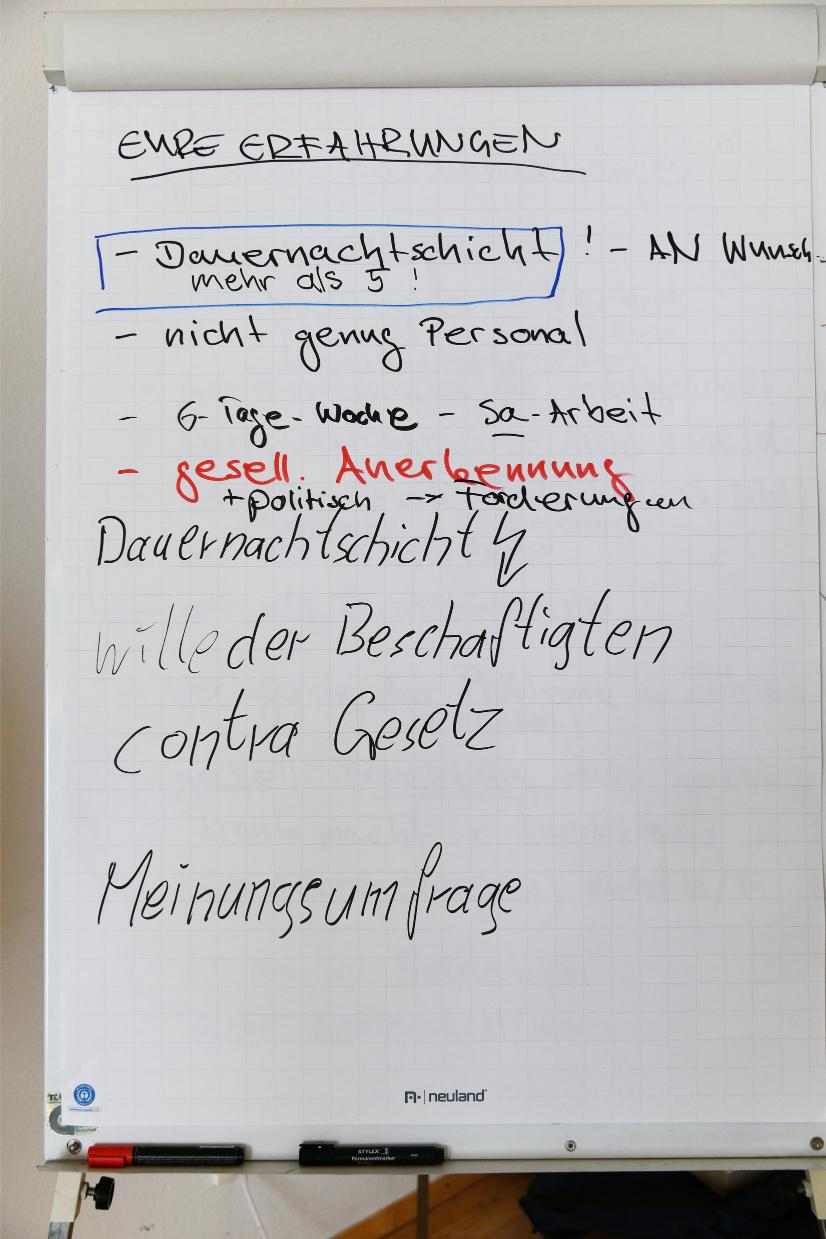 EURE ERFAHRUNGEN
- Dauernachtschicht ! - AN Wunsch
mehr als 5 !
- nicht genug Personal
- 6-Tage-Woche - Sa-Arbeit
- gesell. Anerkennung
+ politisch -> Forderungen
Dauernachtschicht
wille der Beschaftigten
contra Gesetz
Meinungsumfrage
neuland
STYLEX
Permanentmarker